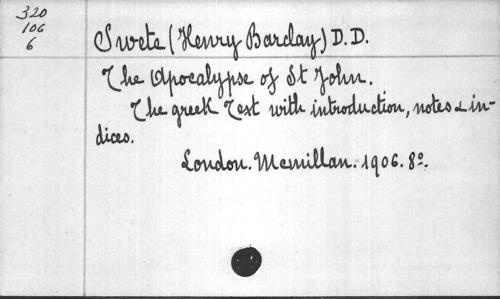 320
106
6
Swete (Henry Barclay) D. D.
The Apocalypse of St John.
The greek Text with introduction, notes & in-
dices.
London. Mcmillan. 1906. 8º.